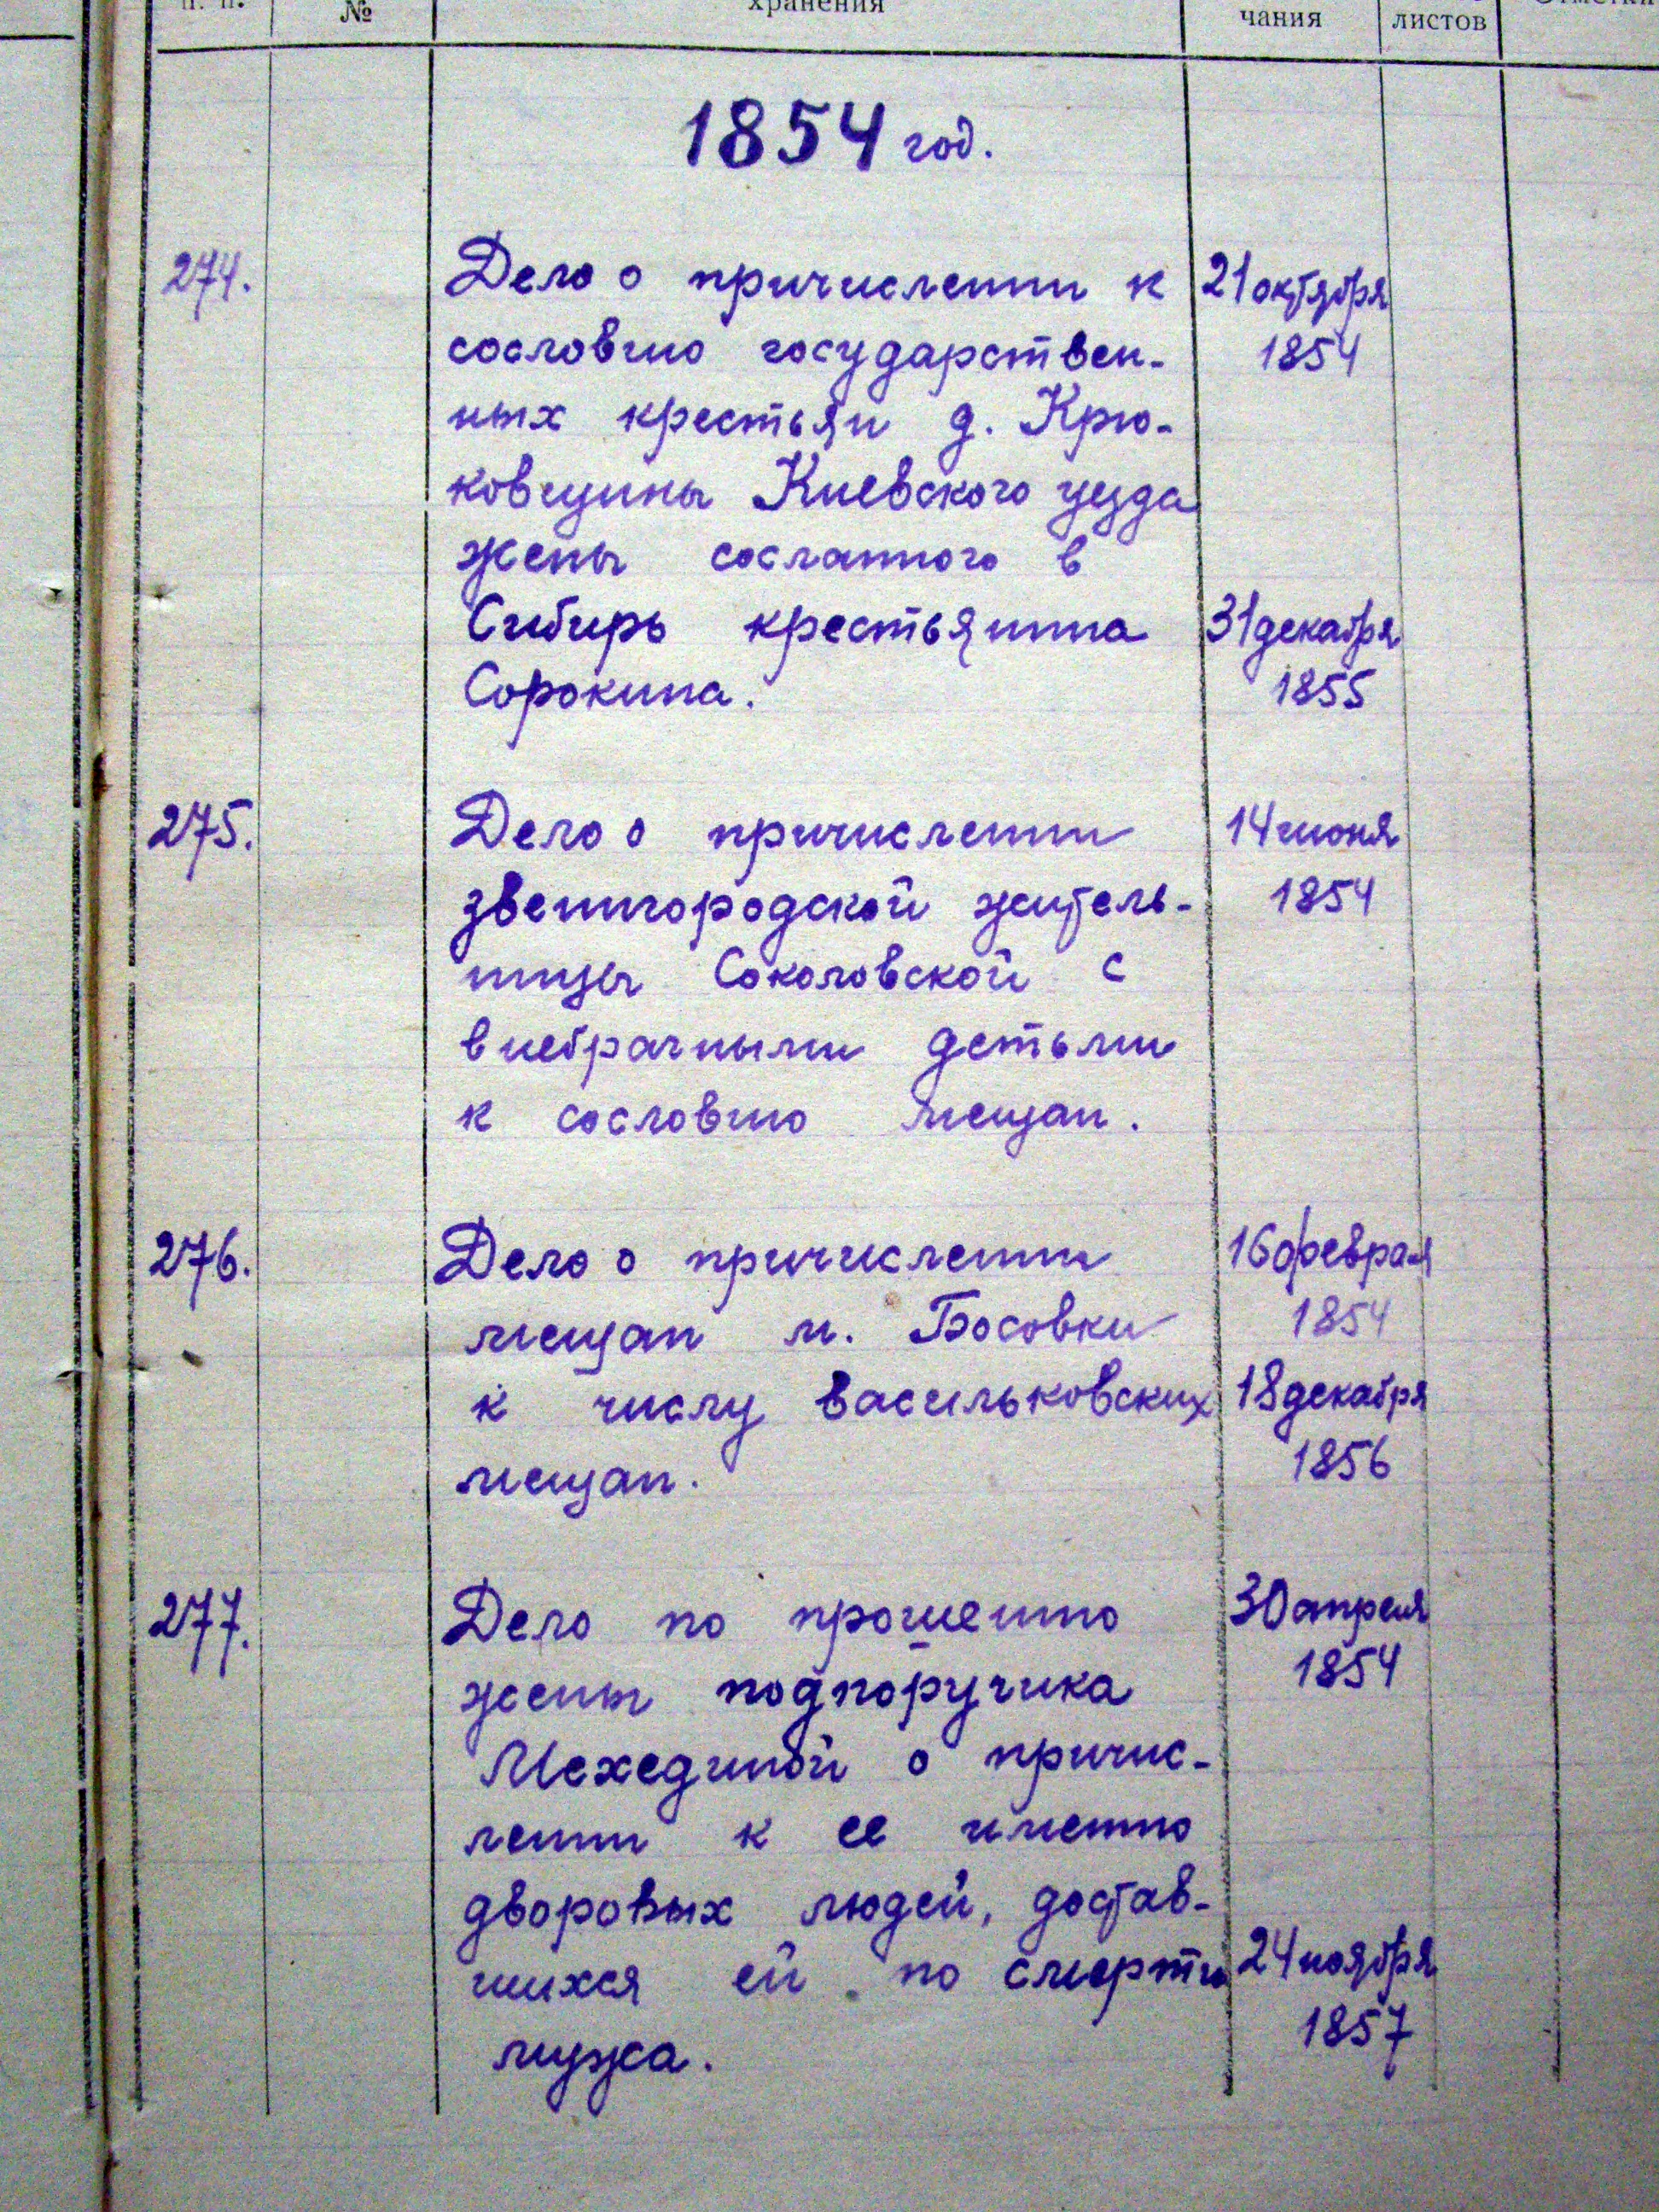 п. п.
№
хранения
чания
листов
1854 год.
274.
Дело о причислении к
сословию государствен-
ных крестьян д. Крю-
ковщины Киевского уезда
жены сосланного в
Сибирь крестьянина
Сорокина.
21 октября
1854
31 декабря
1855
275.
Дело о причислении
звенигородской житель-
ницы Соколовской с
внебрачными детьми
к сословию мещан.
14 июня
1854
276.
Дело о причислении
мещан м. Босовки
к числу васильковских
мещан.
16 февраля
1854
18 декабря
1856
277.
Дело по прошению
жены подпоручика
Мехединой о причис-
лении к ее имению
дворовых людей, достав-
шихся ей по смерти
мужа.
30 апреля
1854
24 ноября
1857